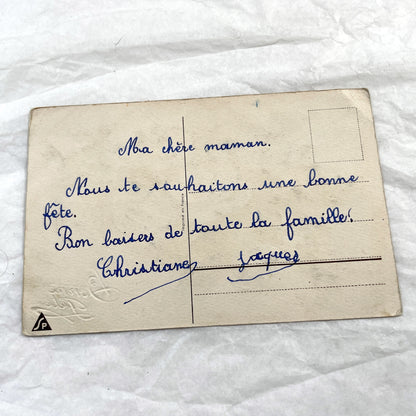 Ma chère maman.
Nous te souhaitons une bonne
fête.
Bon baisers de toute la famille.
Christiane Jacques